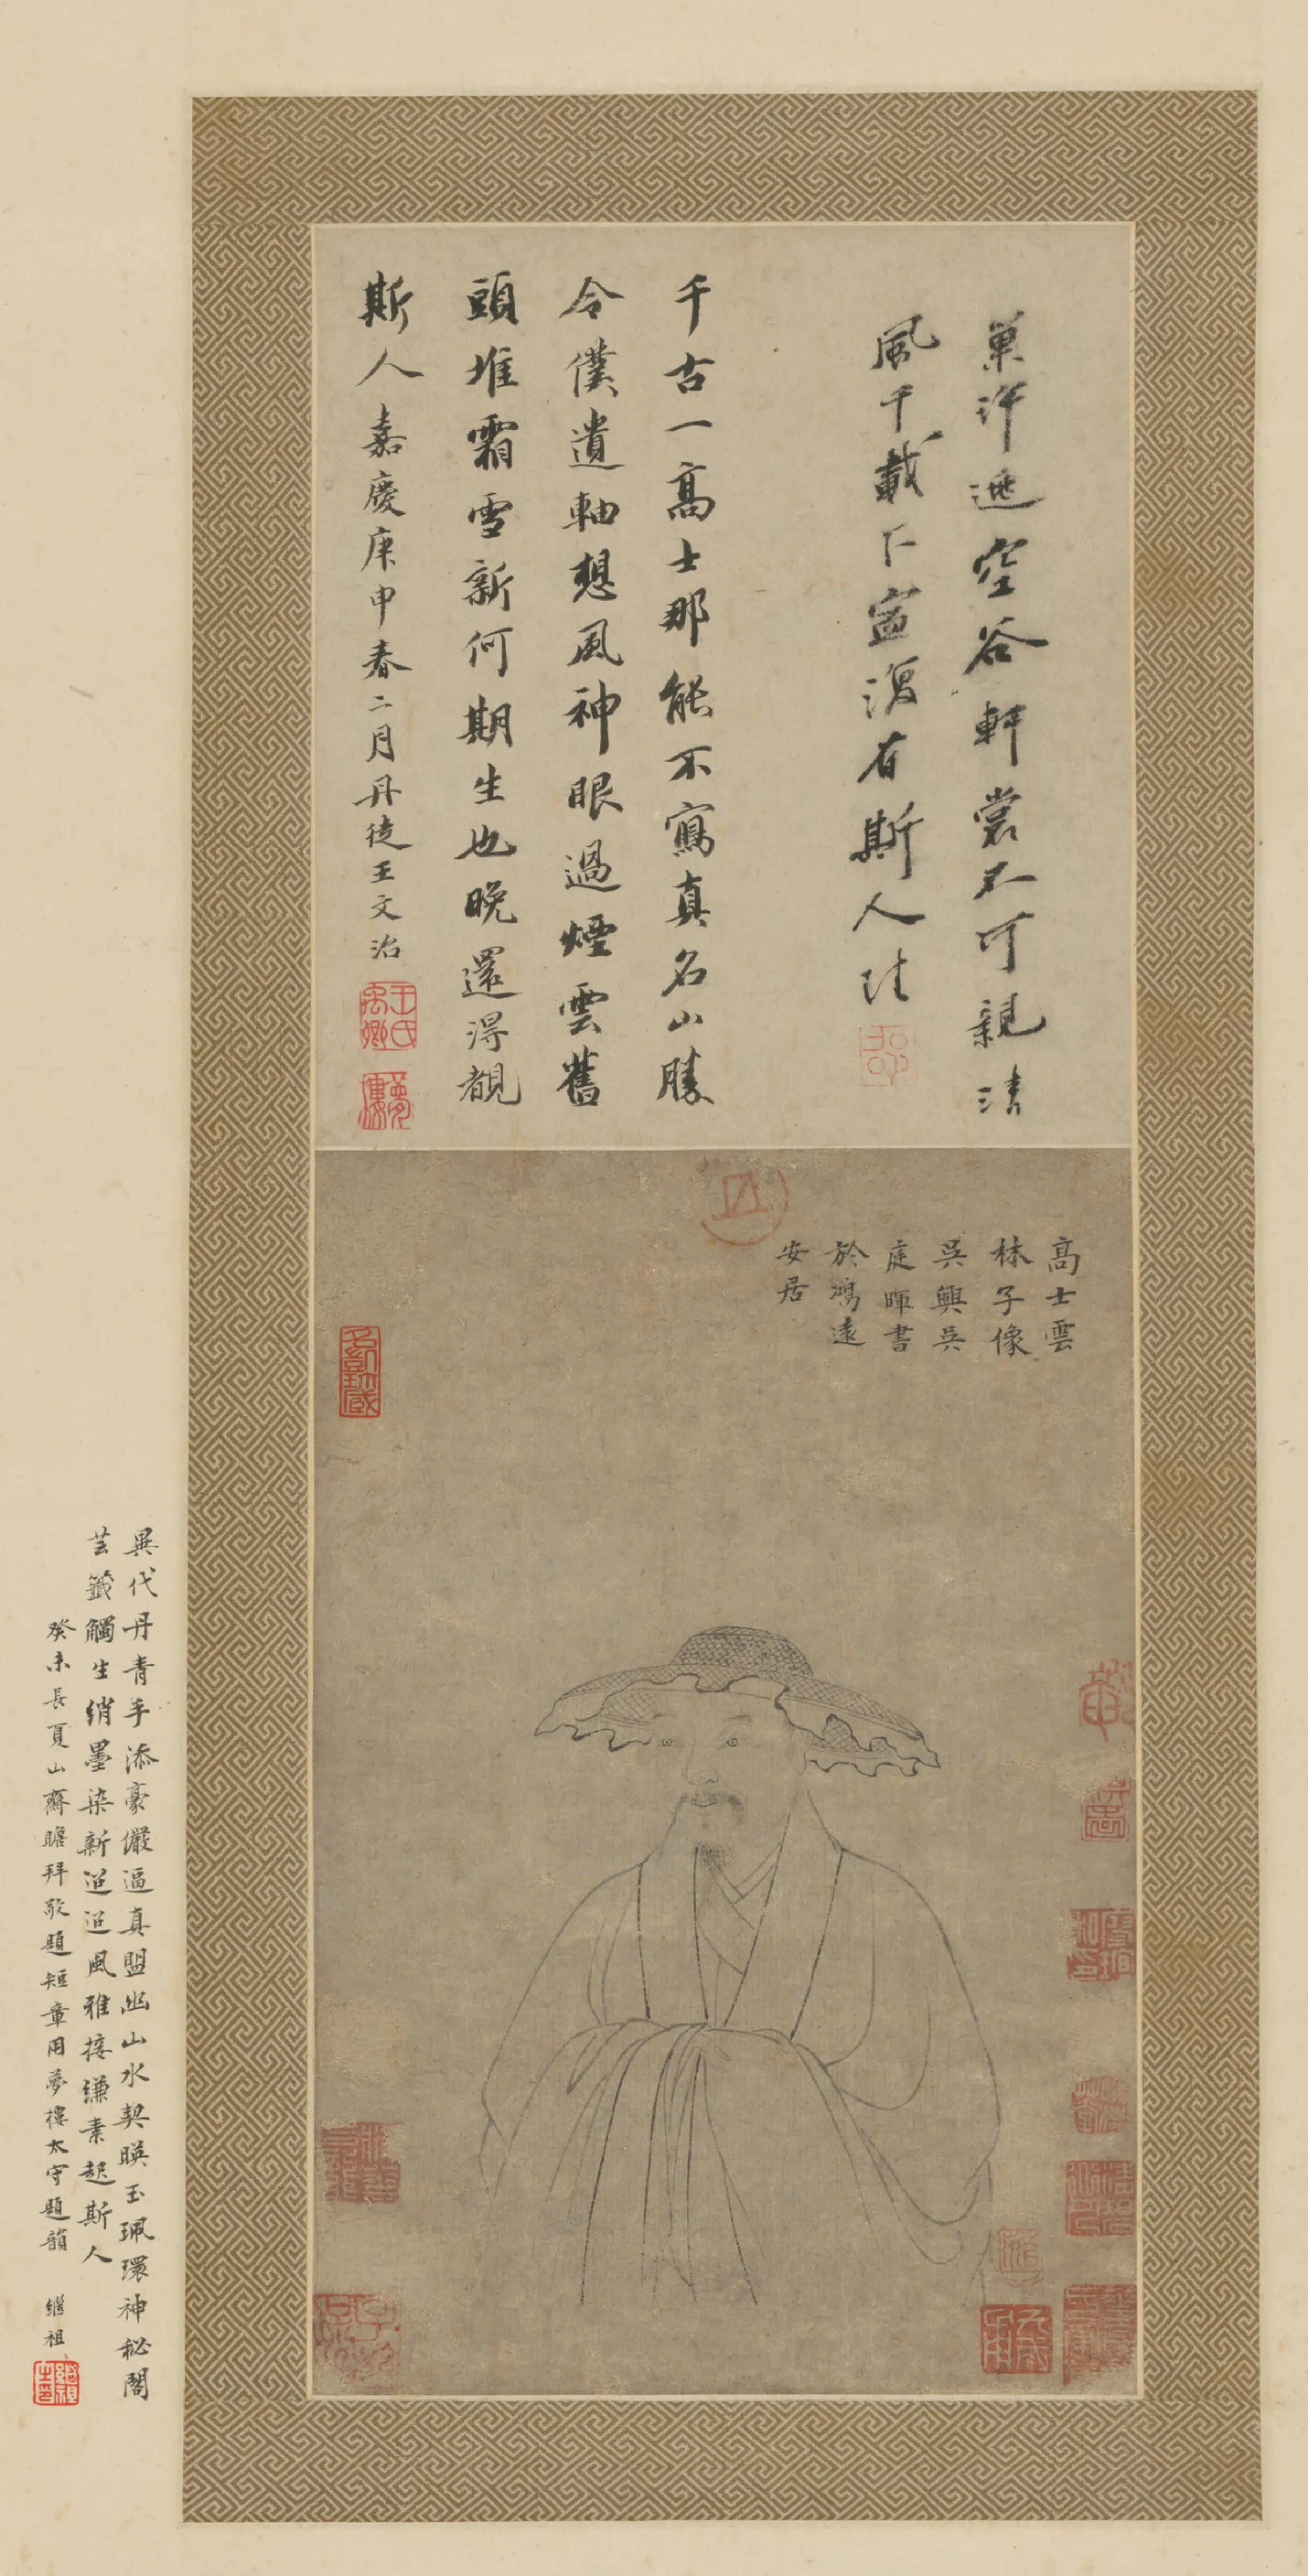 巢許遯空谷軒裳不可親清
風千載下寧復有斯人
千古一高士那能不寫真名山勝
令僕遺軸想風神眼過煙雲舊
頭堆霜雪新何期生也晚還得覩
斯人嘉慶庚申春二月丹徒王文治
王氏禹卿
夢樓
高士雲
林子像
吳興吳
庭暉書
於鴻遠
安居
異代丹青手添豪儼逼真盟幽山水契暎玉珮環神秘閣
芸籤觸生綃墨染新迢迢風雅接縑素起斯人
癸未長夏山齋瞻拜敬題短章用夢樓太守題韻 繼祖